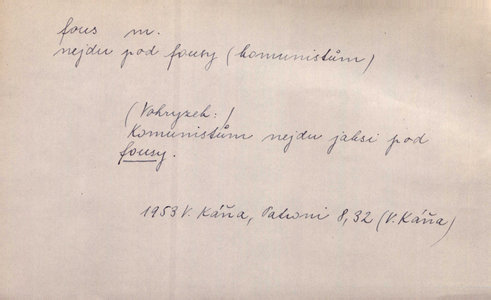 fous m.
nejdu pod fousy (komunistům)
(Vohryzek:/
Komunistům nejdu jaksi pod
fousy.
1953 V. Káňa, Patroni 8,32 (V. Káňa)